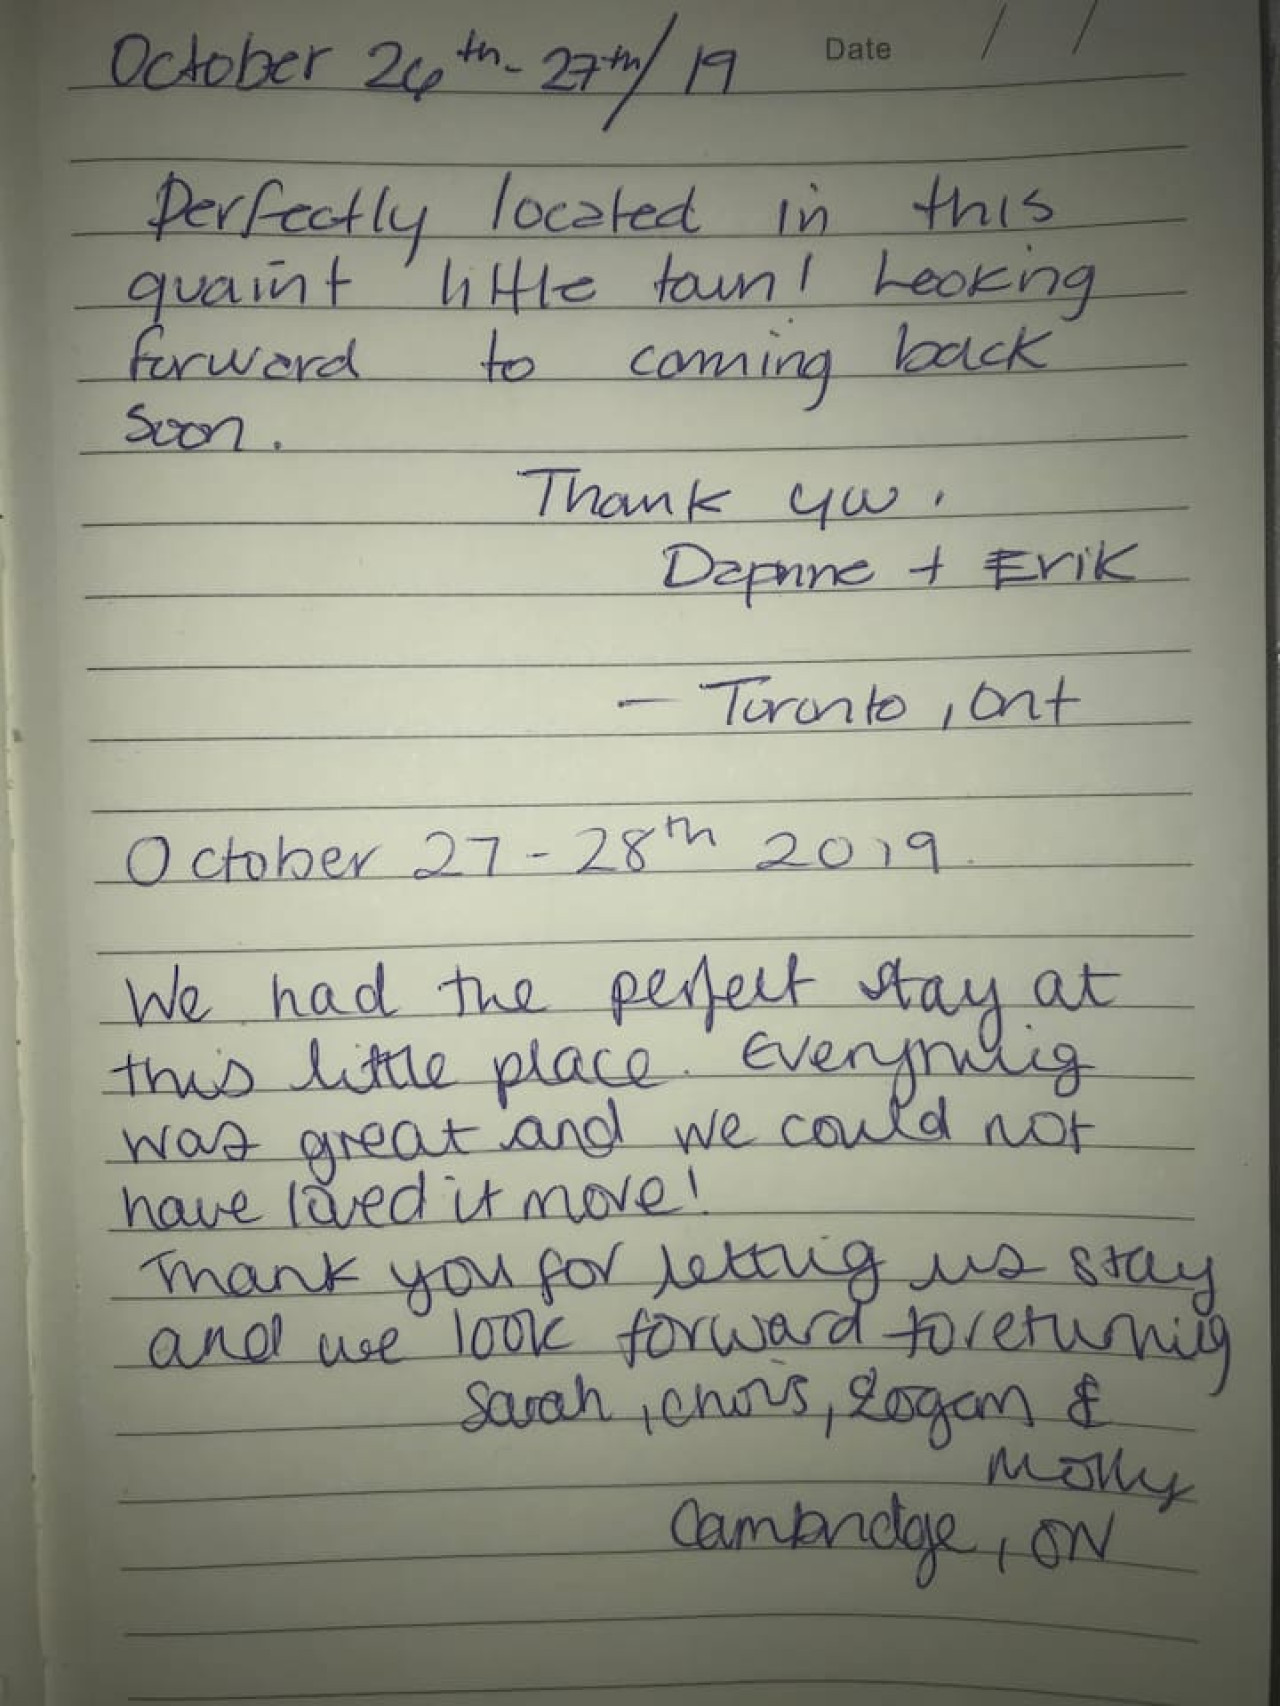 October 26th - 27th/19
Date / /
Perfectly located in this
quaint little town! Looking
forward to coming back
soon.
Thank you.
Daphne + Erik
- Toronto, Ont
October 27 - 28th 2019.
We had the perfect stay at
this little place. Everything
was great and we could not
have loved it more!
Thank you for letting us stay
and we look forward to returning
Sarah, Chris, Logan &
Molly
Cambridge, ON